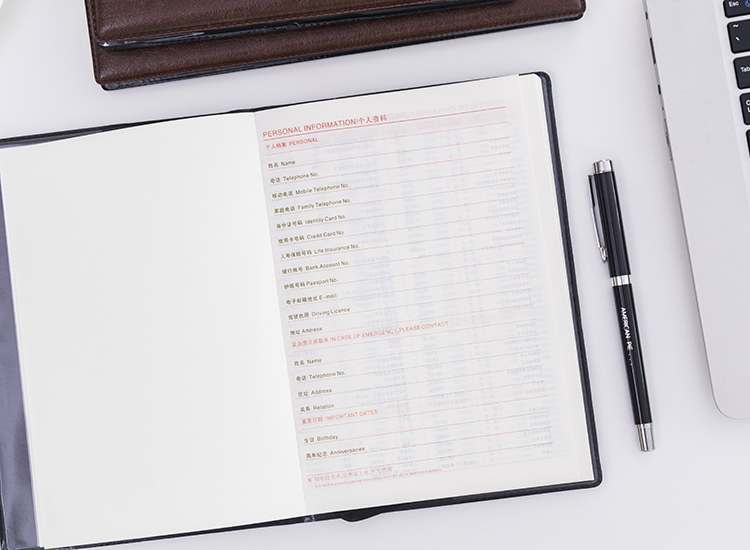 PERSONAL INFORMATION/个人资料
个人档案 PERSONAL
姓名 Name
电话 Telephone No.
移动电话 Mobile Telephone No.
家庭电话 Family Telephone No.
身份证号码 Identity Card No.
信用卡号码 Credit Card No.
人寿保险号码 Life Insurance No.
银行账号 Bank Account No.
护照号码 Passport No.
电子邮箱地址 E-mail
驾驶执照 Driving Licence
地址 Address
IN CASE OF EMERGENCY, PLEASE CONTACT
姓名 Name
电话 Telephone No.
住址 Address
关系 Relation
重要日期 IMPORTANT DATES
生日 Birthday
周年纪念 Anniversaries
AMERICAN
Esc
~
Tab